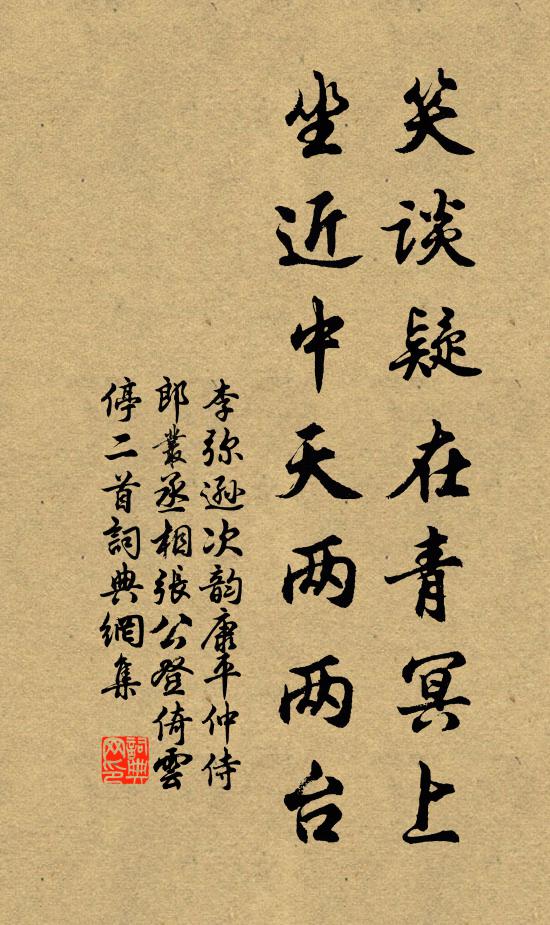 笑谈疑在青冥上
坐近中天两两台
李弥逊次韵康平仲侍
郎叢丞相張公登倚雲
停二首詞典網集
詞典网印